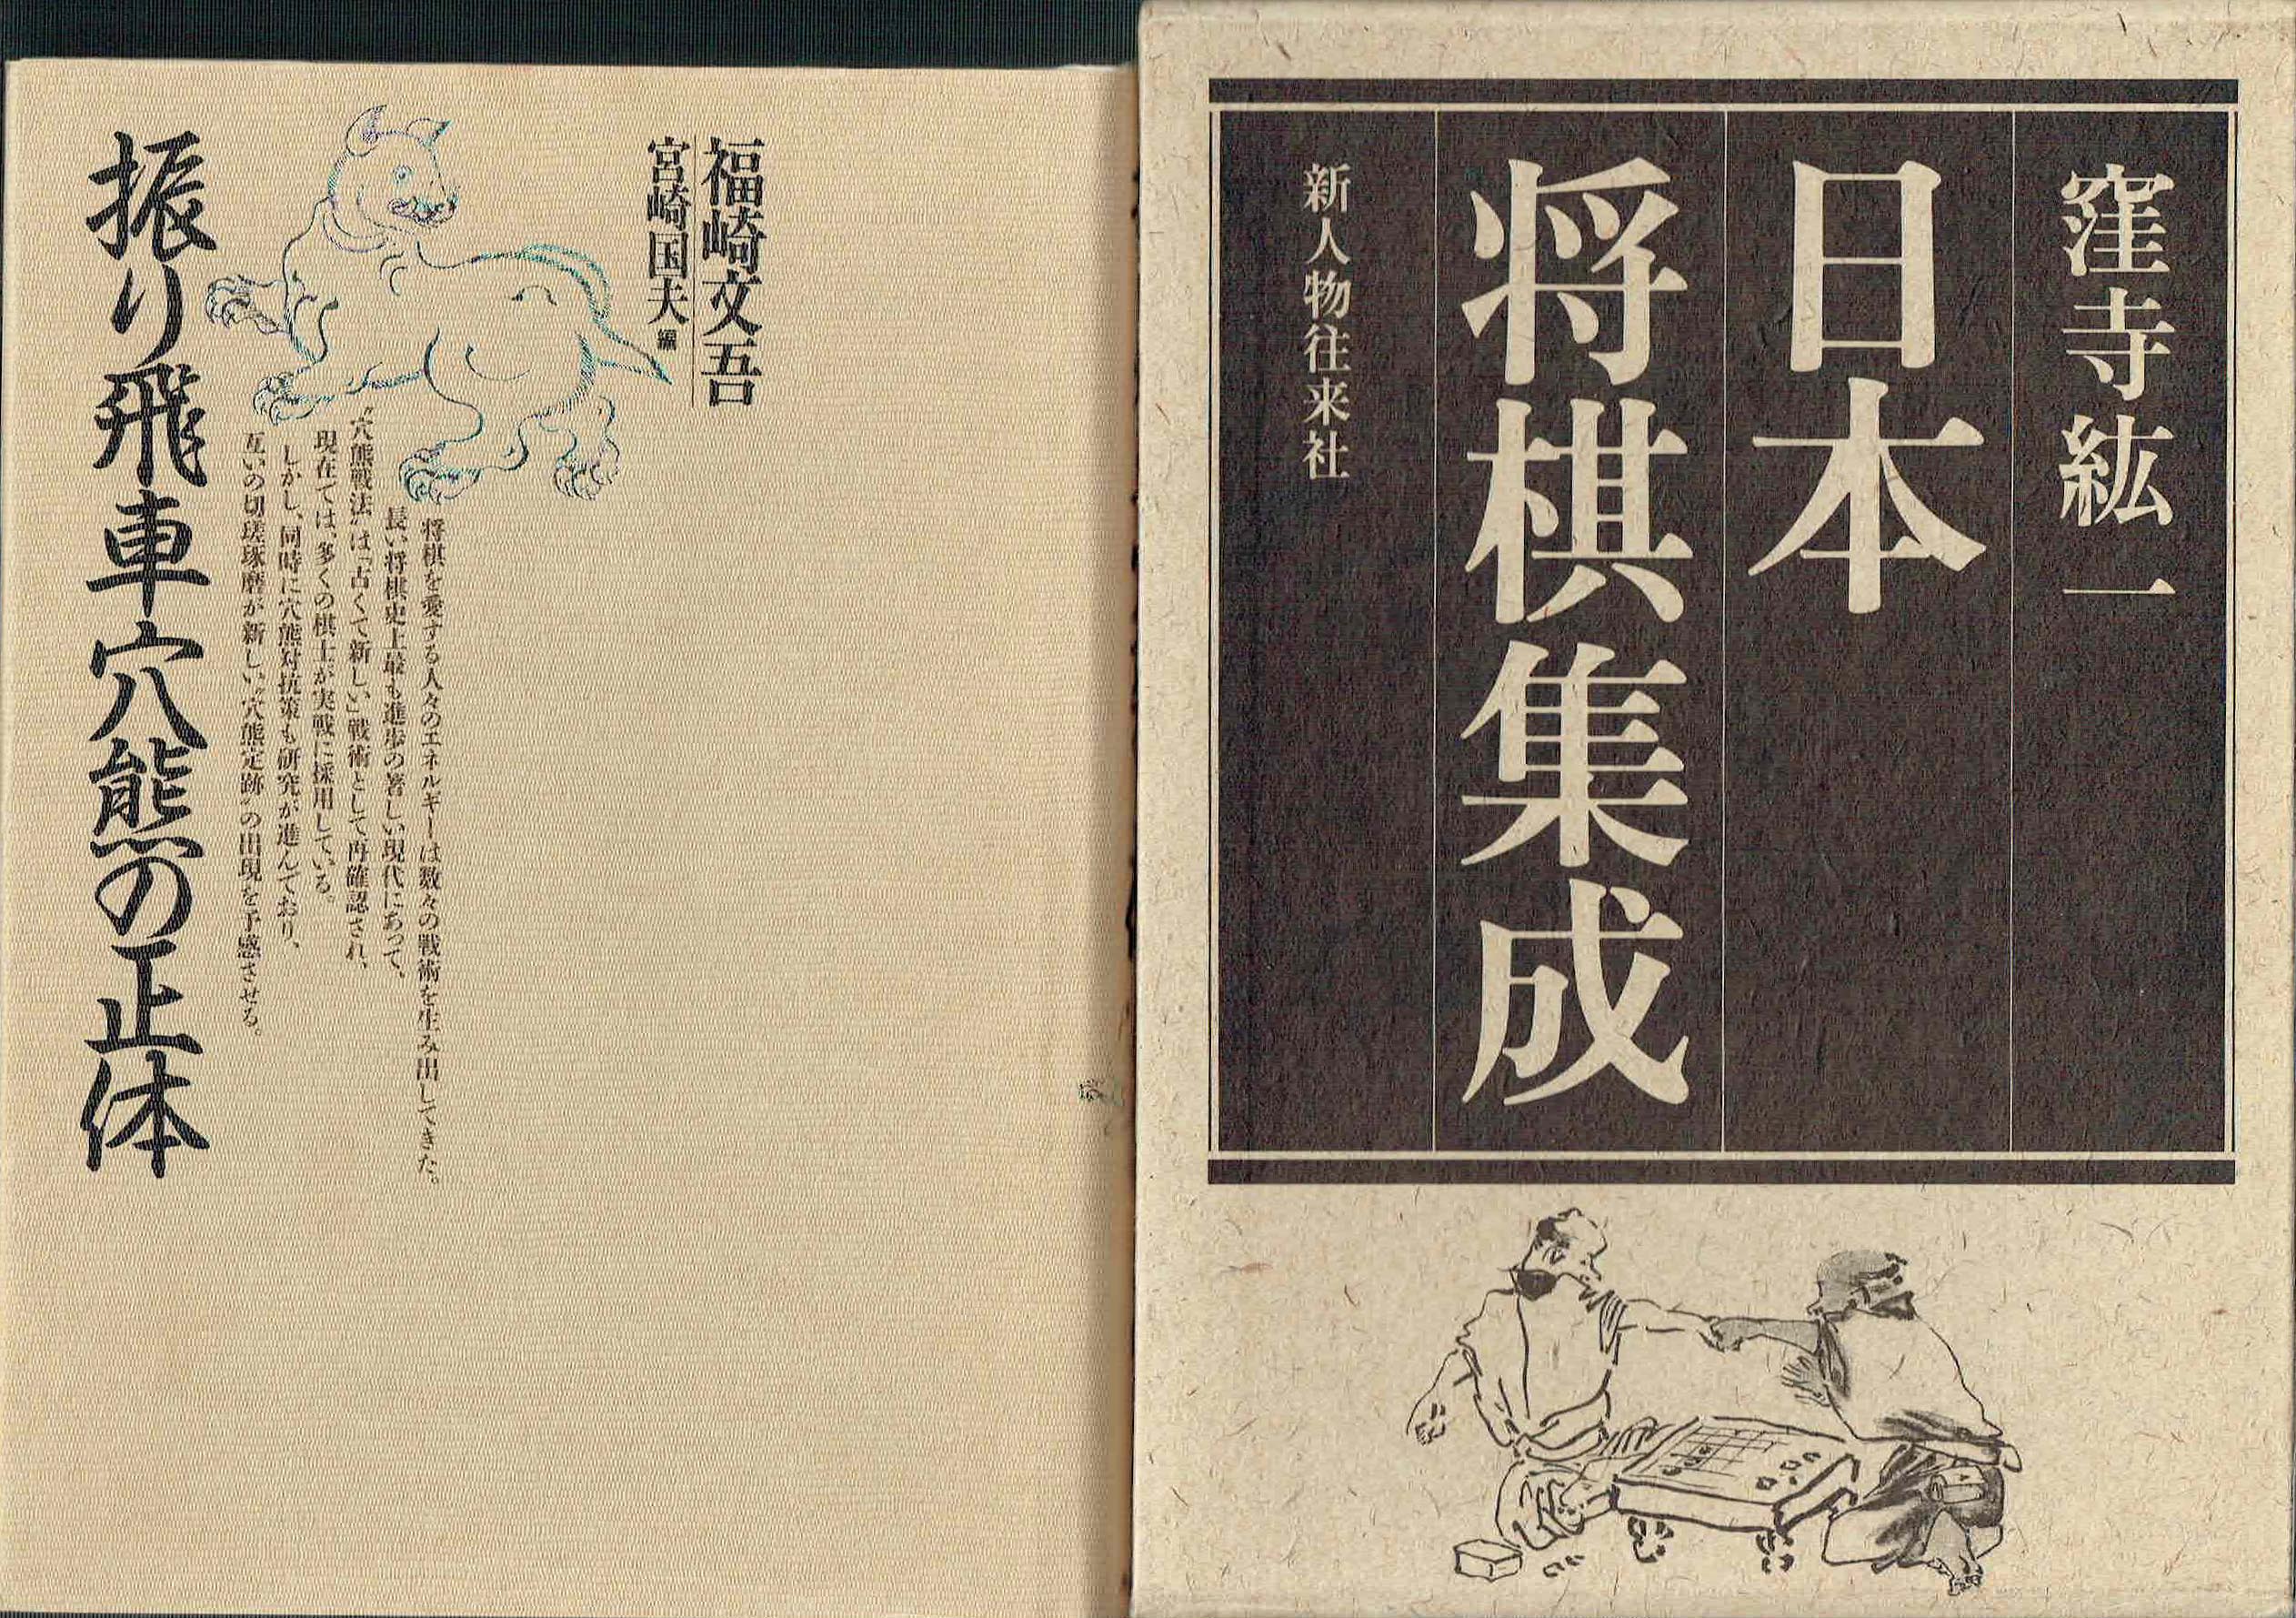 窪寺紘一
日本
将棋集成
新人物往来社
福崎文吾
宮崎国夫 編
将棋を愛する人々のエネルギーは数々の戦術を生み出してきた。
長い将棋史上最も進歩の著しい現代にあって、
〝穴熊戦法〟は「古くて新しい」戦術として再確認され、
現在では、多くの棋士が実戦に採用している。
しかし、同時に穴熊対抗策も研究が進んでおり、
互いの切瑳琢磨が新しい〝穴熊定跡〟の出現を予感させる。
振り飛車穴熊の正体